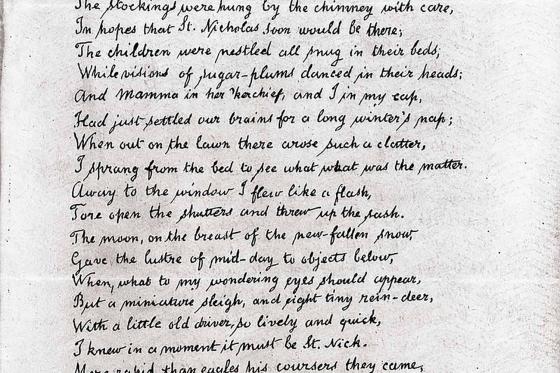 The stockings were hung by the chimney with care,
In hopes that St. Nicholas soon would be there;
The children were nestled all snug in their beds,
While visions of sugar-plums danced in their heads;
And Mamma in her 'kerchief, and I in my cap,
Had just settled our brains for a long winter's nap;
When out on the lawn there arose such a clatter,
I sprang from the bed to see what what was the matter.
Away to the window I flew like a flash,
Tore open the shutters and threw up the sash.
The moon, on the breast of the new-fallen snow,
Gave the lustre of mid-day to objects below,
When, what to my wondering eyes should appear,
But a miniature sleigh, and eight tiny rein-deer,
With a little old driver, so lively and quick,
I knew in a moment it must be St. Nick.
More rapid than eagles his coursers they came,